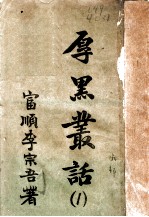 厚黑叢話(1)
富順李宗吾著